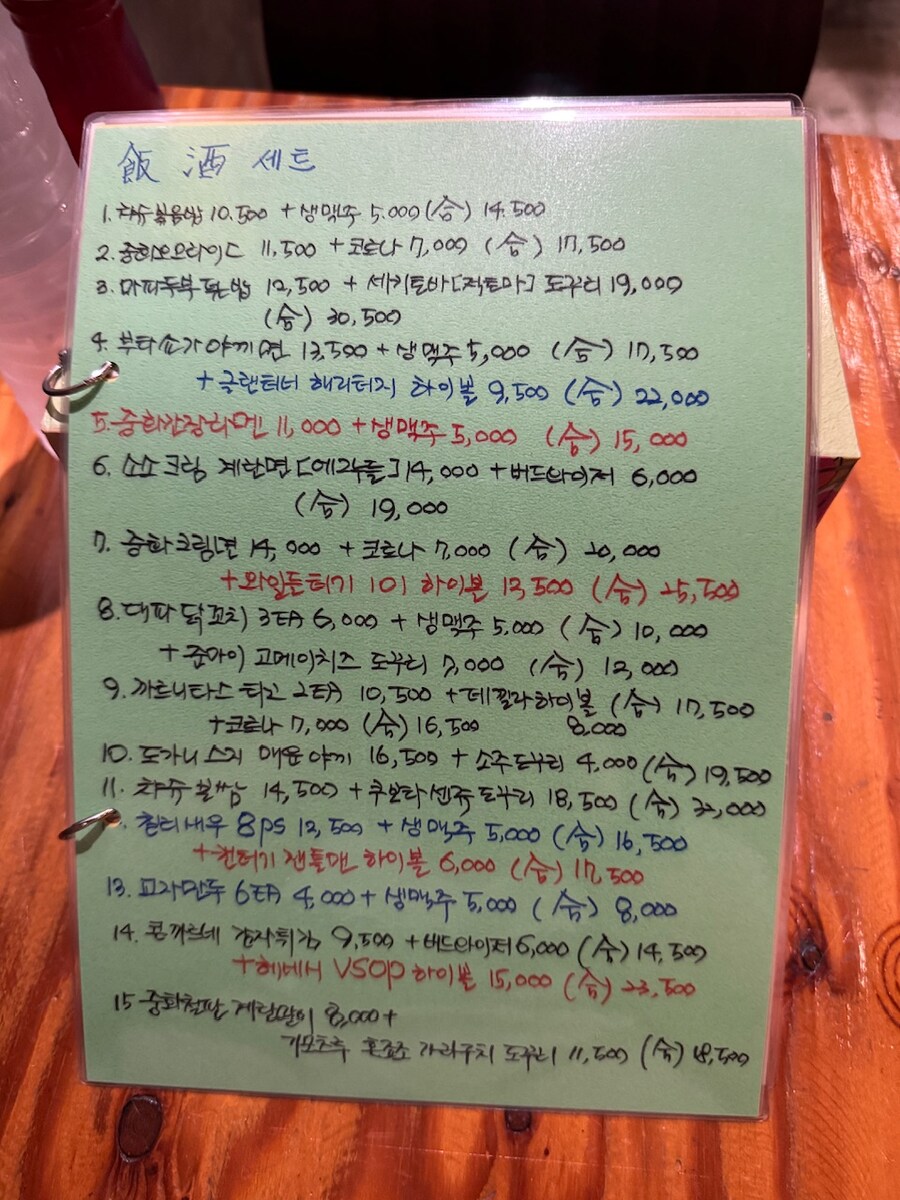 飯 酒 세트
1. 차슈볶음밥 10,500 + 생맥주 5,000 (合) 14,500
2. 중화오므라이스 11,500 + 코로나 7,000 (合) 17,500
3. 마파두부덮밥 12,500 + 세키토바[적토마] 도쿠리 19,000
(合) 30,500
4. 부타쇼가야끼면 13,500 + 생맥주 5,000 (合) 17,500
+ 글랜터너 헤리티지 하이볼 9,500 (合) 22,000
5. 중화간장라멘 11,000 + 생맥주 5,000 (合) 15,000
6. 소소크림 계란면 [에그누들] 14,000 + 버드와이저 6,000
(合) 19,000
7. 중화크림면 14,000 + 코로나 7,000 (合) 20,000
+ 와일드터키 101 하이볼 13,500 (合) 25,500
8. 대파닭꼬치 3EA 6,000 + 생맥주 5,000 (合) 10,000
+ 준마이 고메이치즈 도쿠리 7,000 (合) 12,000
9. 까르니타스 타코 2EA 10,500 + 데낄라하이볼 (合) 17,500
+ 코로나 7,000 (合) 16,500 8,000
10. 도가니스지 매운야끼 16,500 + 소주도쿠리 4,000 (合) 19,500
11. 차슈보쌈 14,500 + 쿠보타센쥬 도쿠리 18,500 (合) 32,000
칠리새우 8ps 12,500 + 생맥주 5,000 (合) 16,500
+ 컨터키 젠틀맨 하이볼 6,000 (合) 17,500
13. 교자만두 6EA 4,000 + 생맥주 5,000 (合) 8,000
14. 콘까르네 감자튀김 9,500 + 버드와이저 6,000 (合) 14,500
+ 헤네시 VSOP 하이볼 15,000 (合) 23,500
15 중화철판 계란말이 8,000 +
도쿠리 11,500 (合) 18,500